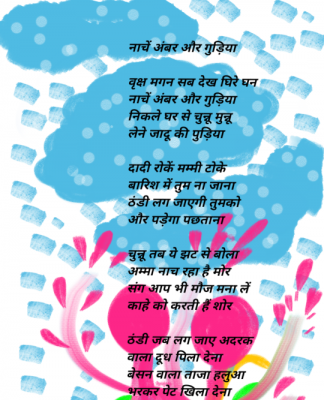 नाचें अंबर और गुड़िया
वृक्ष मगन सब देख घिरे घन
नाचें अंबर और गुड़िया
निकले घर से चुन्नू मुन्नू
लेने जादू की पुड़िया
दादी रोकें मम्मी टोके
बारिश में तुम ना जाना
ठंडी लग जाएगी तुमको
और पड़ेगा पछताना
चुन्नू तब ये झट से बोला
अम्मा नाच रहा है मोर
संग आप भी मौज मना लें
काहे को करती हैं शोर
ठंडी जब लग जाए अदरक
वाला दूध पिला देना
बेसन वाला ताजा हलुआ
भरकर पेट खिला देना